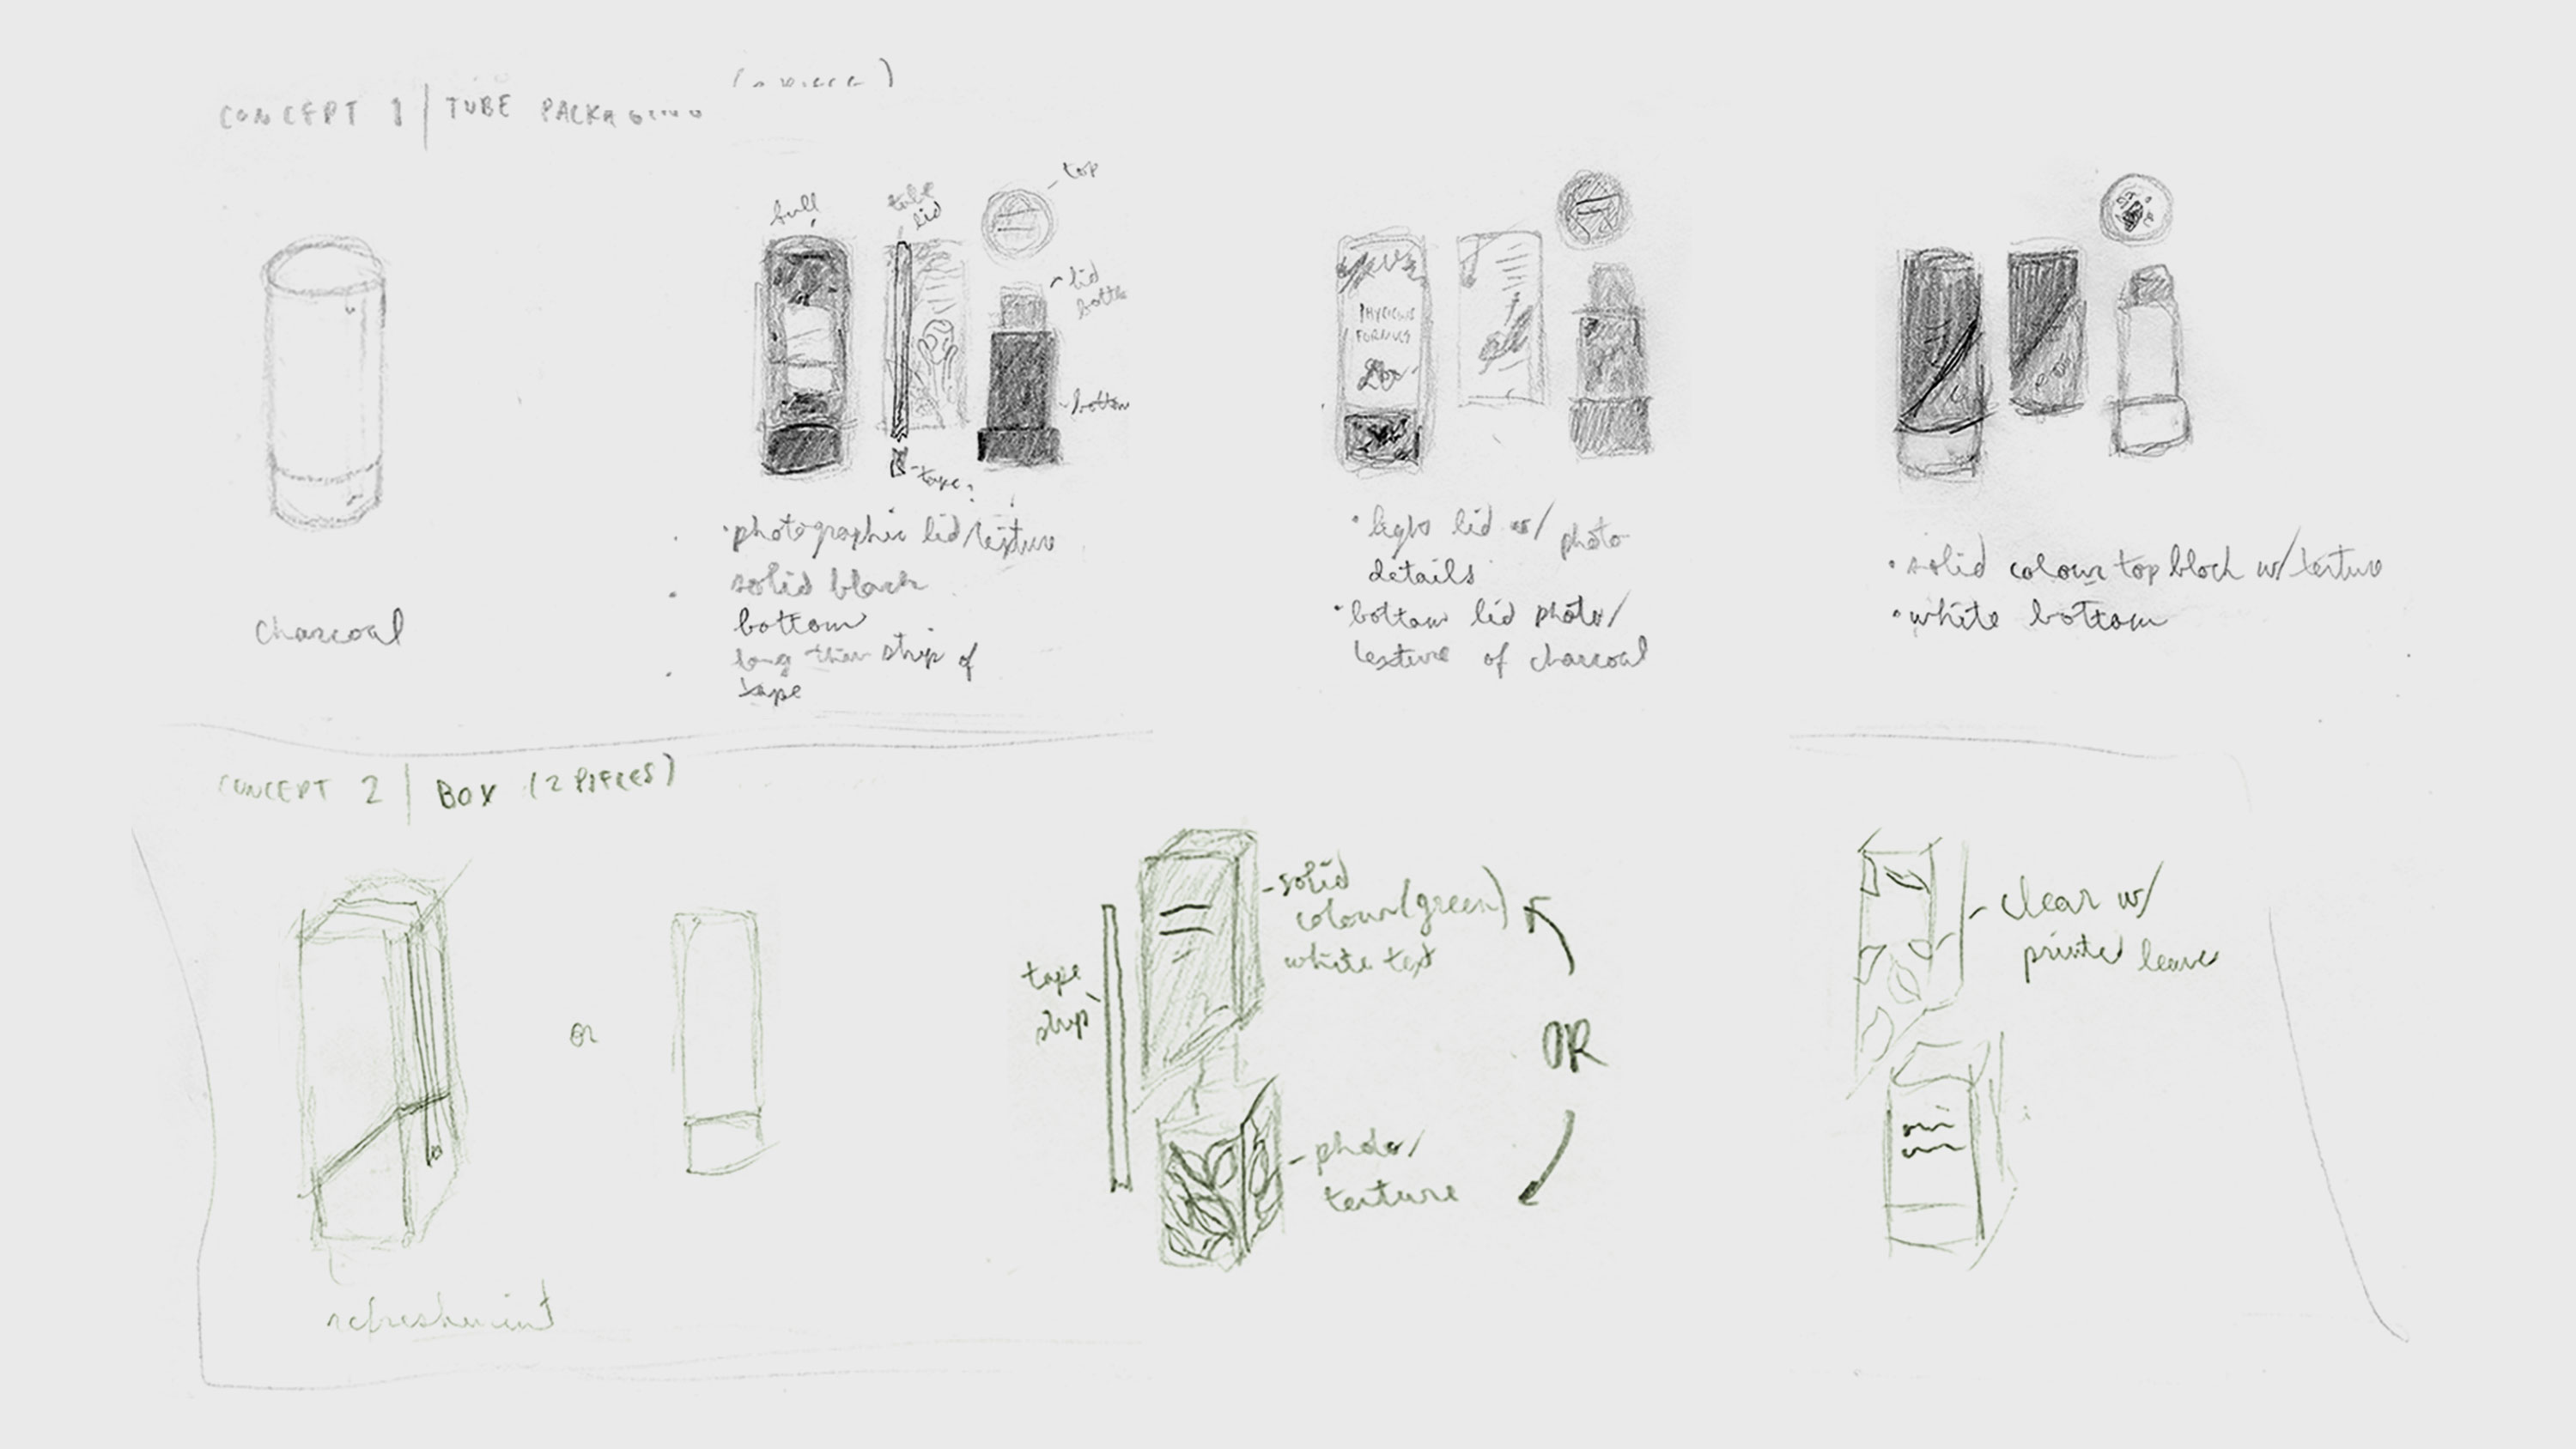 CONCEPT 1 | TUBE PACKAGING
charcoal
full
tube
lid
top
lid
bottle
bottom
tape
• photographic lid/texture
• solid black
bottom
• long thin strip of
tape
PHYSICIANS
FORMULA
• light lid w/ photo
details
• bottom lid photo/
texture of charcoal
• solid colour top block w/ texture
• white bottom
CONCEPT 2 | BOX (2 PIECES)
or
refreshmint
tape
strip
- solid
colour (green)
white text
- photo/
texture
OR
- clear w/
printed leaves